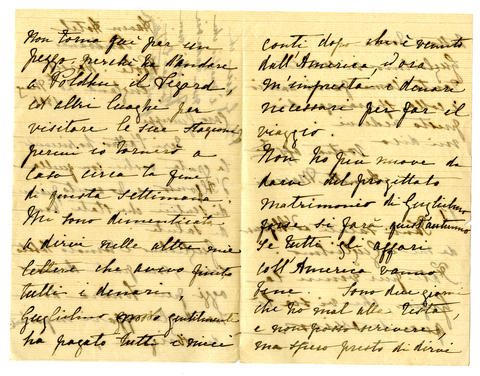 Non torna qui per un
pezzo, perchè va andare
a Poldhu il Lizard,
ed altri luoghi per
visitare le sue stazioni
perciò io tornerò a
Casa circa la fine
di questa settimana.
Mi sono dimenticata
a dirvi nelle altre mie
lettere che avevo finito
tutti i denari,
Guglielmo gentilmente
ha pagato tutti i miei
conti dopo che è venuto
dall'America, ed ora
m'impresta i denari
necessari per far il
viaggio.
Non ho più nuove da
darvi del progettato
matrimonio di Guglielmo
forse si farà quest'autunno
se tutti gli affari
coll'America vanno
bene Sono due giorni
che ho mal alla testa,
e non posso scrivere,
ma spero presto di dirvi